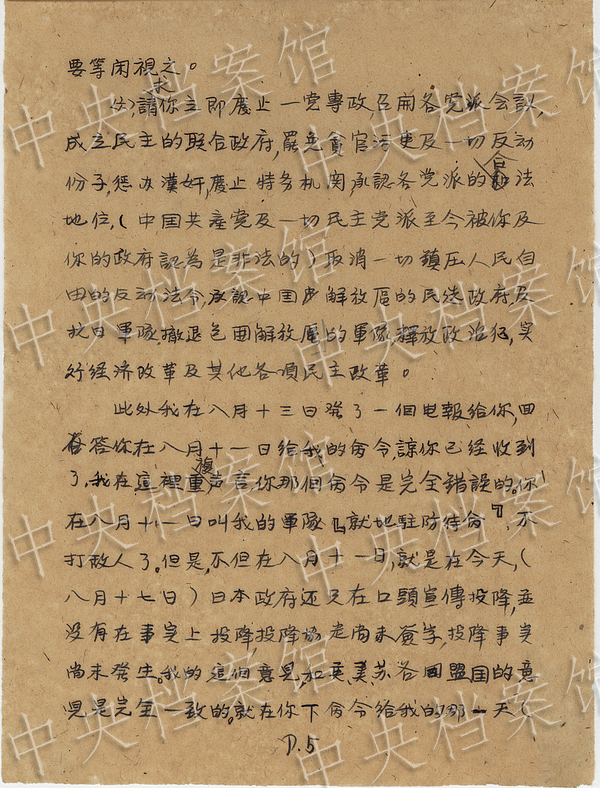 要等闲視之。
(六),請求你立即廢止一党專政,召開各党派会議,
成立民主的联合政府,罷免貪官污吏及一切反动
份子,惩办漢奸,廢止特务机関,承認各党派的合法
地位,(中国共産党及一切民主党派至今被你及
你的政府認為是非法的)取消一切鎮压人民自
由的反动法令,承認中国解放區的民选政府及
抗日軍隊,撤退包囲解放區的軍隊,釋放政治犯,实
行经济改革及其他各項民主改革。
此外我在八月十三日發了一個电報給你,回
答你在八月十一日给我的命令,諒你已经收到
了。我在這裡重複声言,你那個命令是完全錯誤的。你
在八月十一日叫我的軍隊『就地駐防待命』,不
打敌人了。但是,不但在八月十一日,就是在今天,(
八月十七日)日本政府还只在口頭宣傳投降,並
没有在事实上投降,投降協定尚未簽字,投降事实
尚未發生。我的這個意見,和英、美、苏各同盟国的意
見是完全一致的。就在你下命令给我的那一天(
P.5
中央档案馆